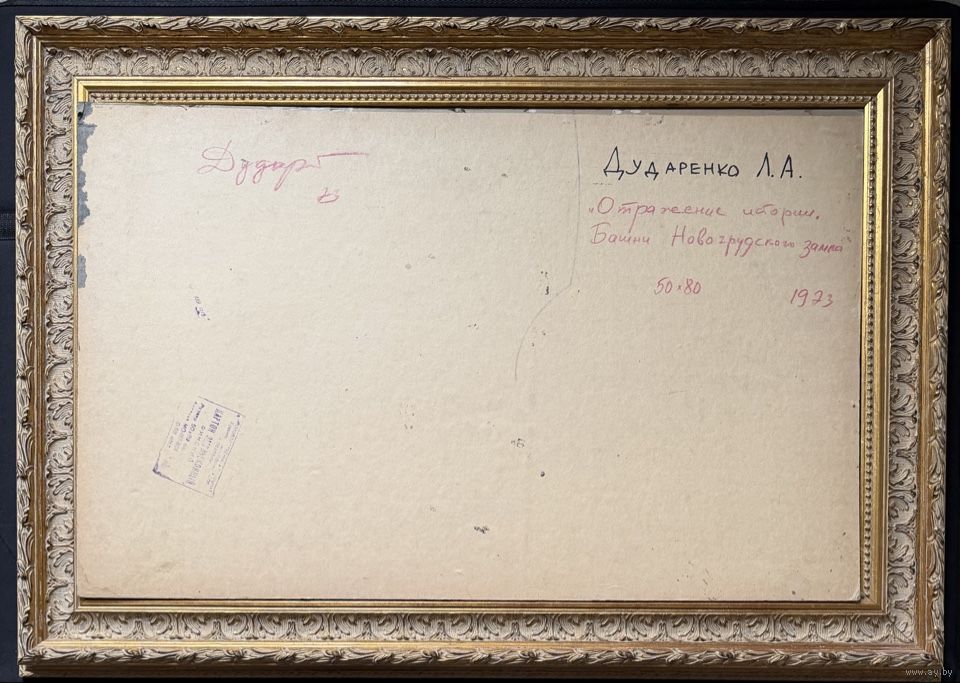 Дудар
73
ДУДАРЕНКО Л.А.
„Отражение истории.
Башни Новогрудского замка"
50×80
1973
КАРТОН
www.ay.by